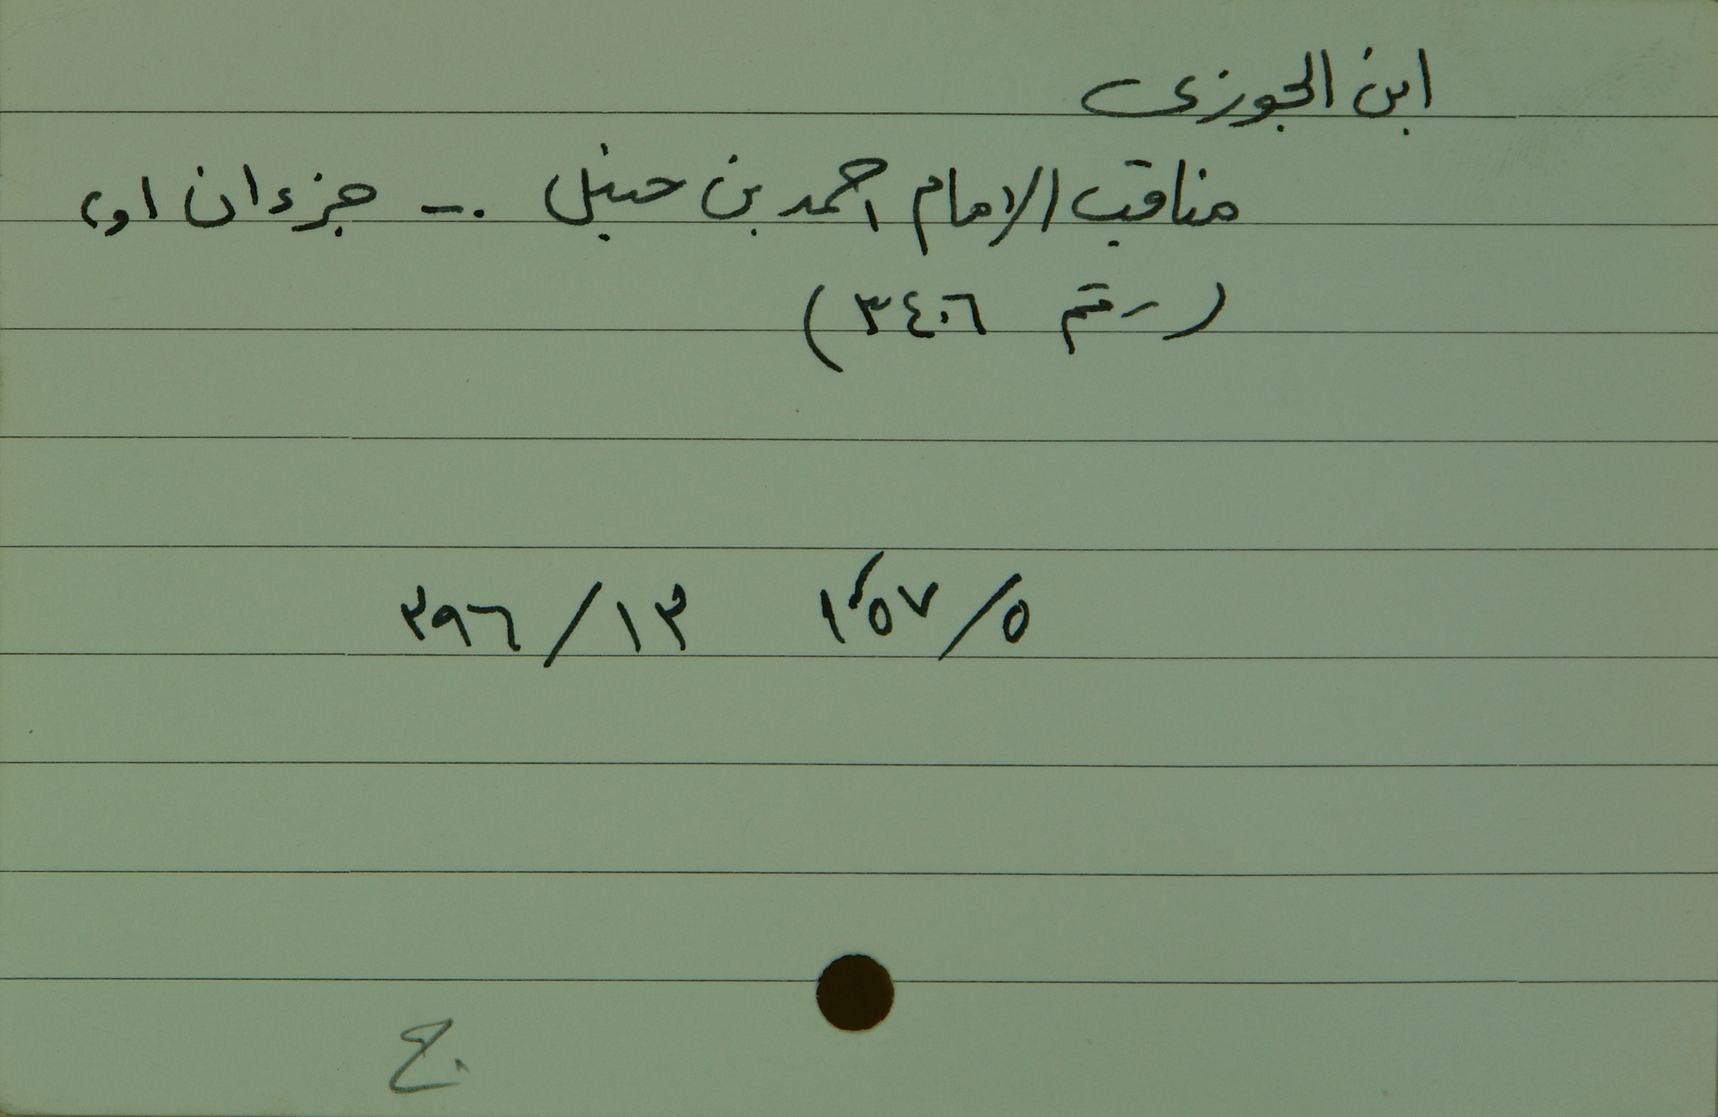 ابن الجوزى
مناقب الامام احمد بن حنبل .- جزءان ١و٢
(رقم ٣٤٠٦)
٥/١٠٥٧ ٣٩٦/١٣
ع.